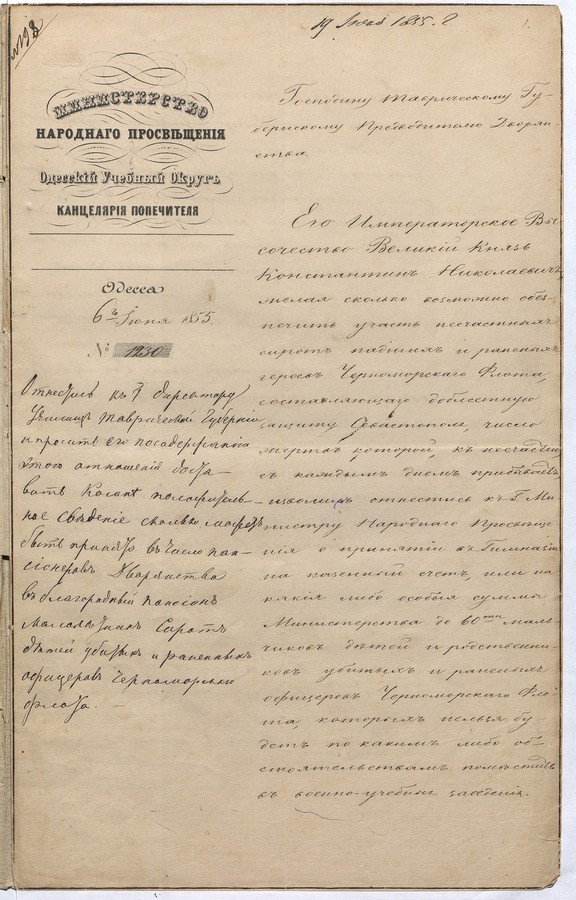 № 198
19 Июня 1855. г
1.
МИНИСТЕРСТВО
НАРОДНАГО ПРОСВѢЩЕНІЯ
Одесскій Учебный Округъ
КАНЦЕЛЯРІЯ ПОПЕЧИТЕЛЯ
Одесса
6го Іюня 1855.
№ 1230
Отнестись къ Г директору
Училищъ Таврической Губерніи
и просить его по содержанію
этого отношенія доста-
вить положитель-
ное сведеніе сколько можетъ
быть принято въ число пан-
сіонеровъ Дворянства
въ благородный пансіонъ
Сиротъ
дѣтей убитыхъ и раненныхъ
офицеровъ Черноморскаго
флота.
Господину Таврическому Гу-
бернскому Предводителю Дворян-
ства.
Его Императорское Вы-
сочество Великій Князь
Константинъ Николаевичъ,
желая сколько возможно обез-
печить участь несчастныхъ
сиротъ падшихъ и раненыхъ
героевъ Черноморскаго Флота,
составляющаго доблестную
защиту Севастополя, число
жертвъ которой, къ несчастію,
съ каждымъ днемъ прибываетъ,
изволилъ отнестись къ Г. Ми-
нистру Народнаго Просвѣще-
нія о принятіи въ Гимназіи
на казенный счетъ, или на
какія либо особыя суммы
Министерства до 60ти маль-
чиковъ дѣтей и родственни-
ковъ убитыхъ и раненыхъ
офицеровъ Черноморскаго Фло-
та, которыхъ нельзя бу-
детъ по какимъ либо об-
стоятельствамъ помѣстить
въ военно-учебныя заведенія.